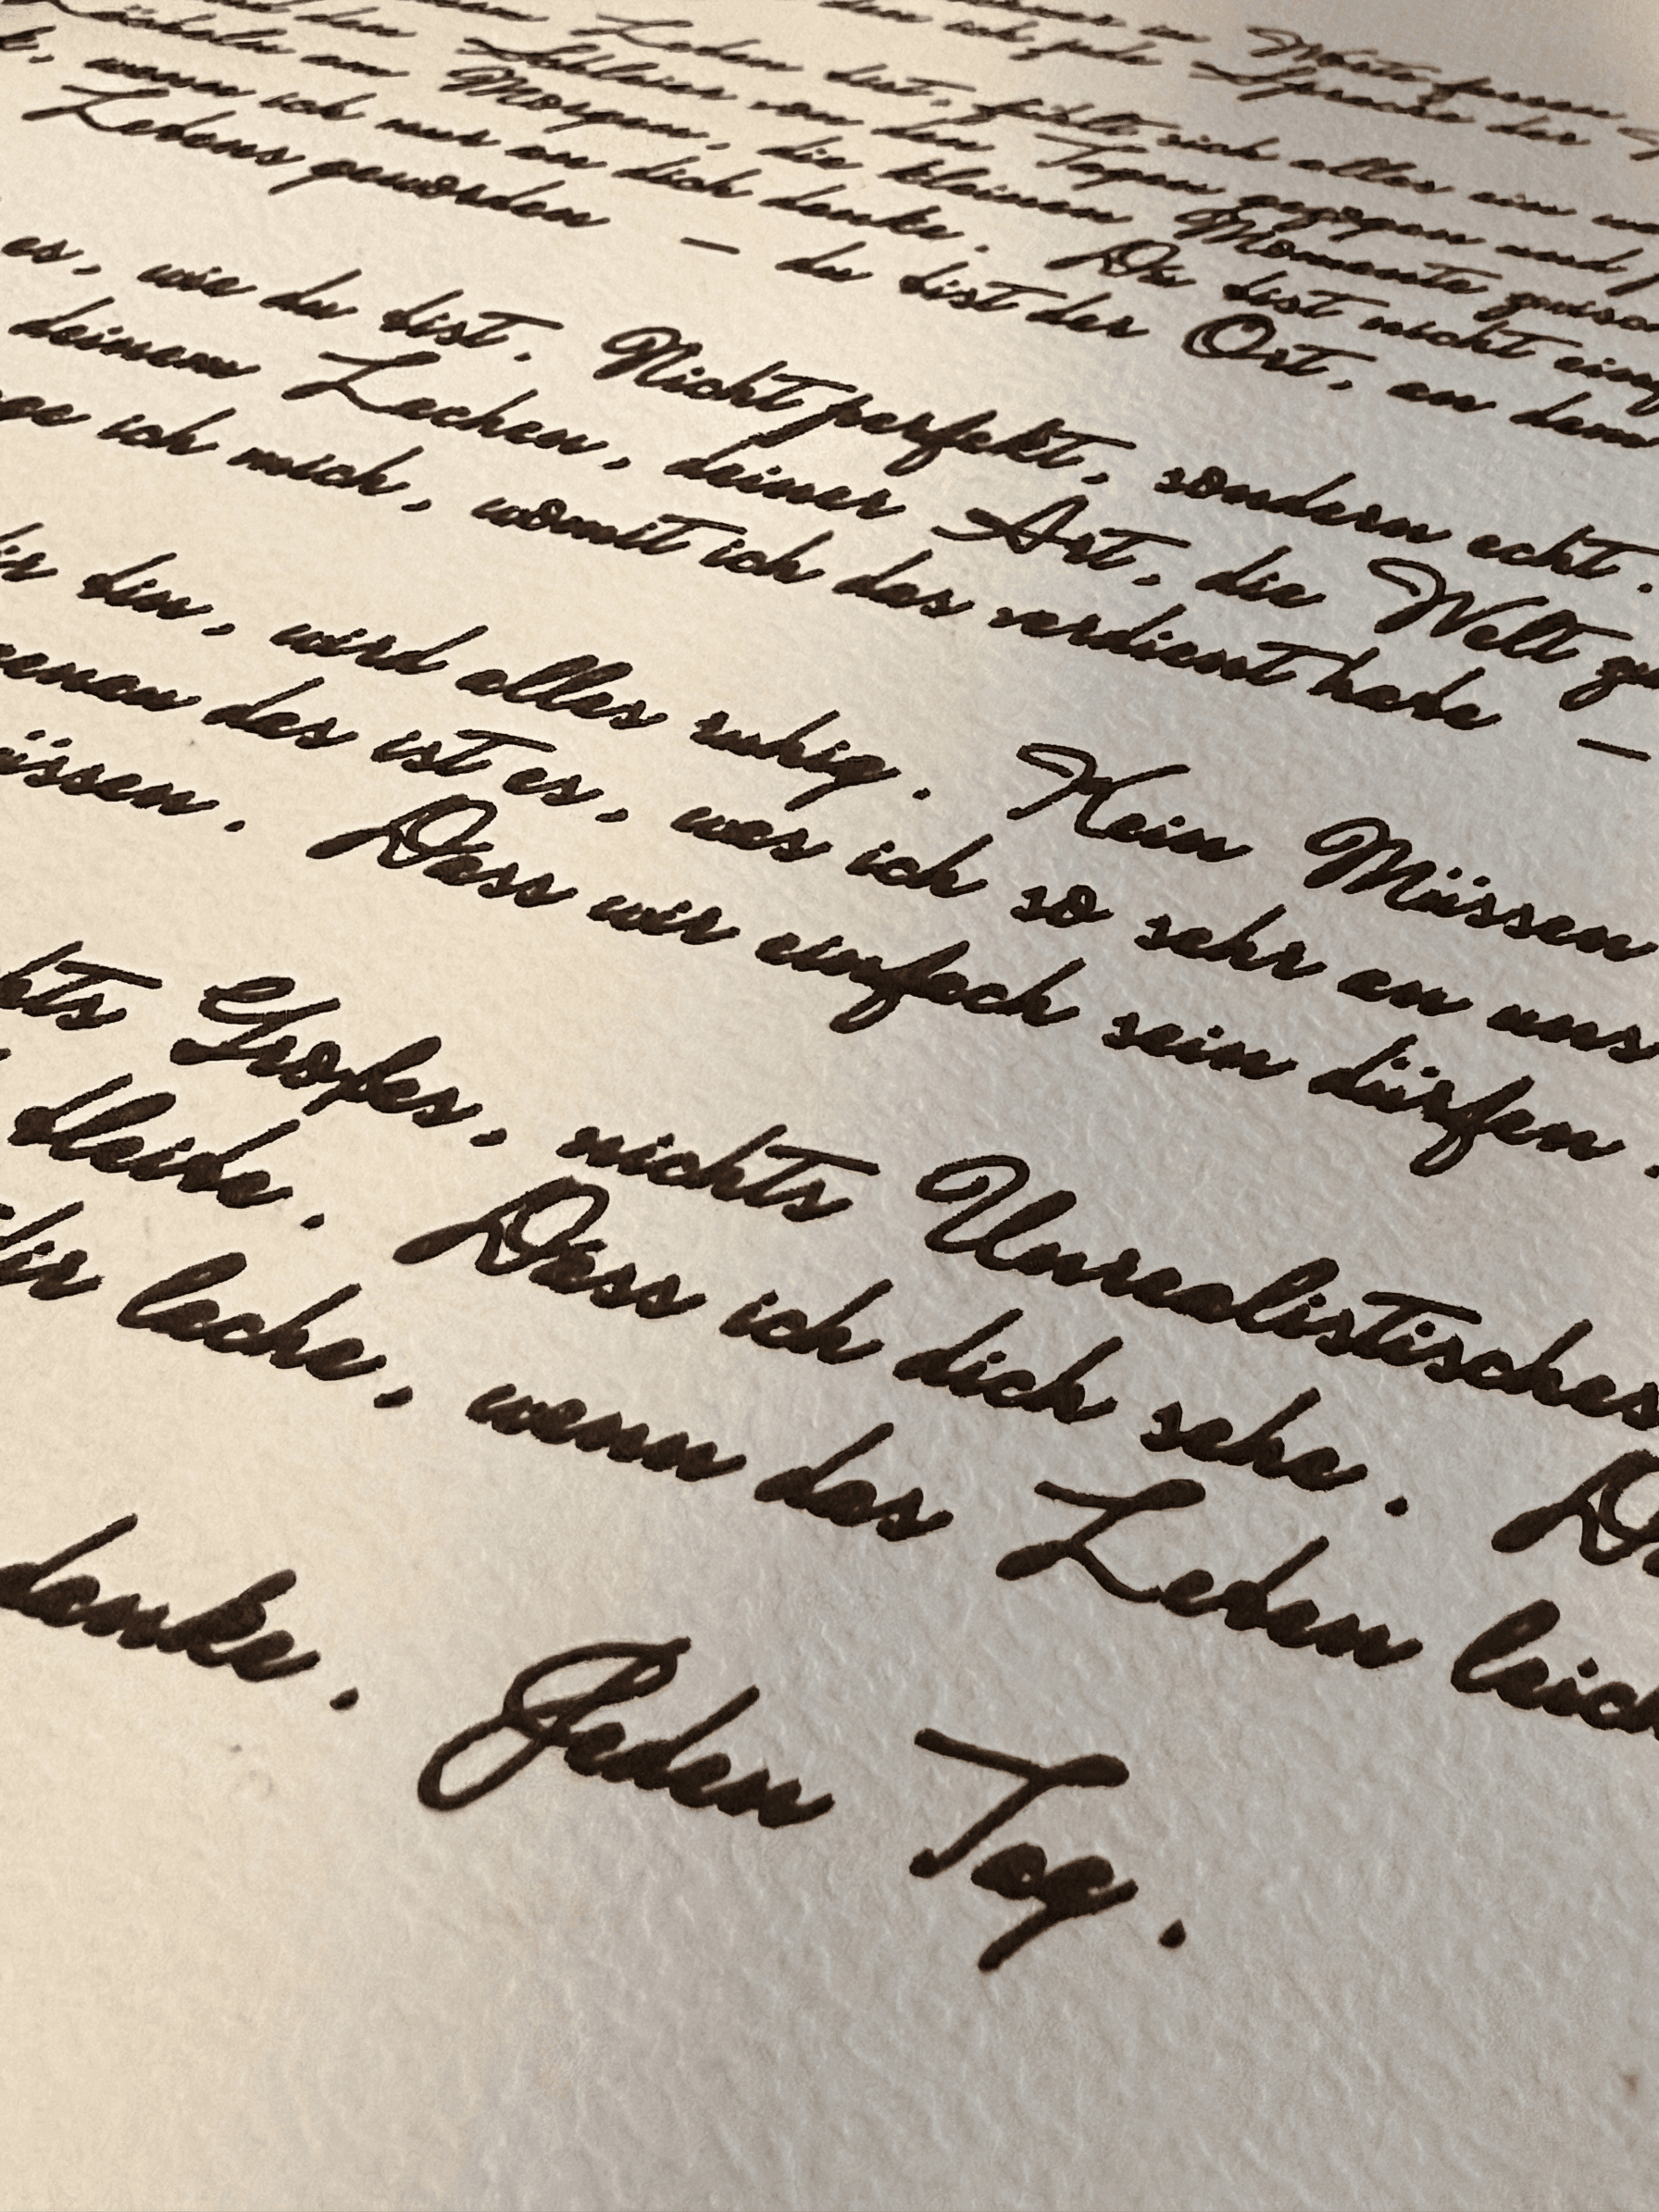 in Worte fassen
den ich jede Sprache der
Leben bist, fühlt sich alles ein
den Schleier von den Tagen gezogen und
Lächeln am Morgen, die kleinen Momente
wenn ich nur an dich denke. Du bist nicht
Lebens geworden – du bist der Ort, an dem
es, wie du bist. Nicht perfekt, sondern echt.
deinem Lachen, deiner Art, die Welt zu
ich mich, womit ich das verdient habe –
dir bin, wird alles ruhig. Kein Müssen
das ist es, was ich so sehr an uns
müssen. Dass wir einfach sein dürfen.
Großes, nichts Unrealistisches
bleibe. Dass ich dich sehe.
dir lache, wenn das Leben
denke. Jeden Tag.